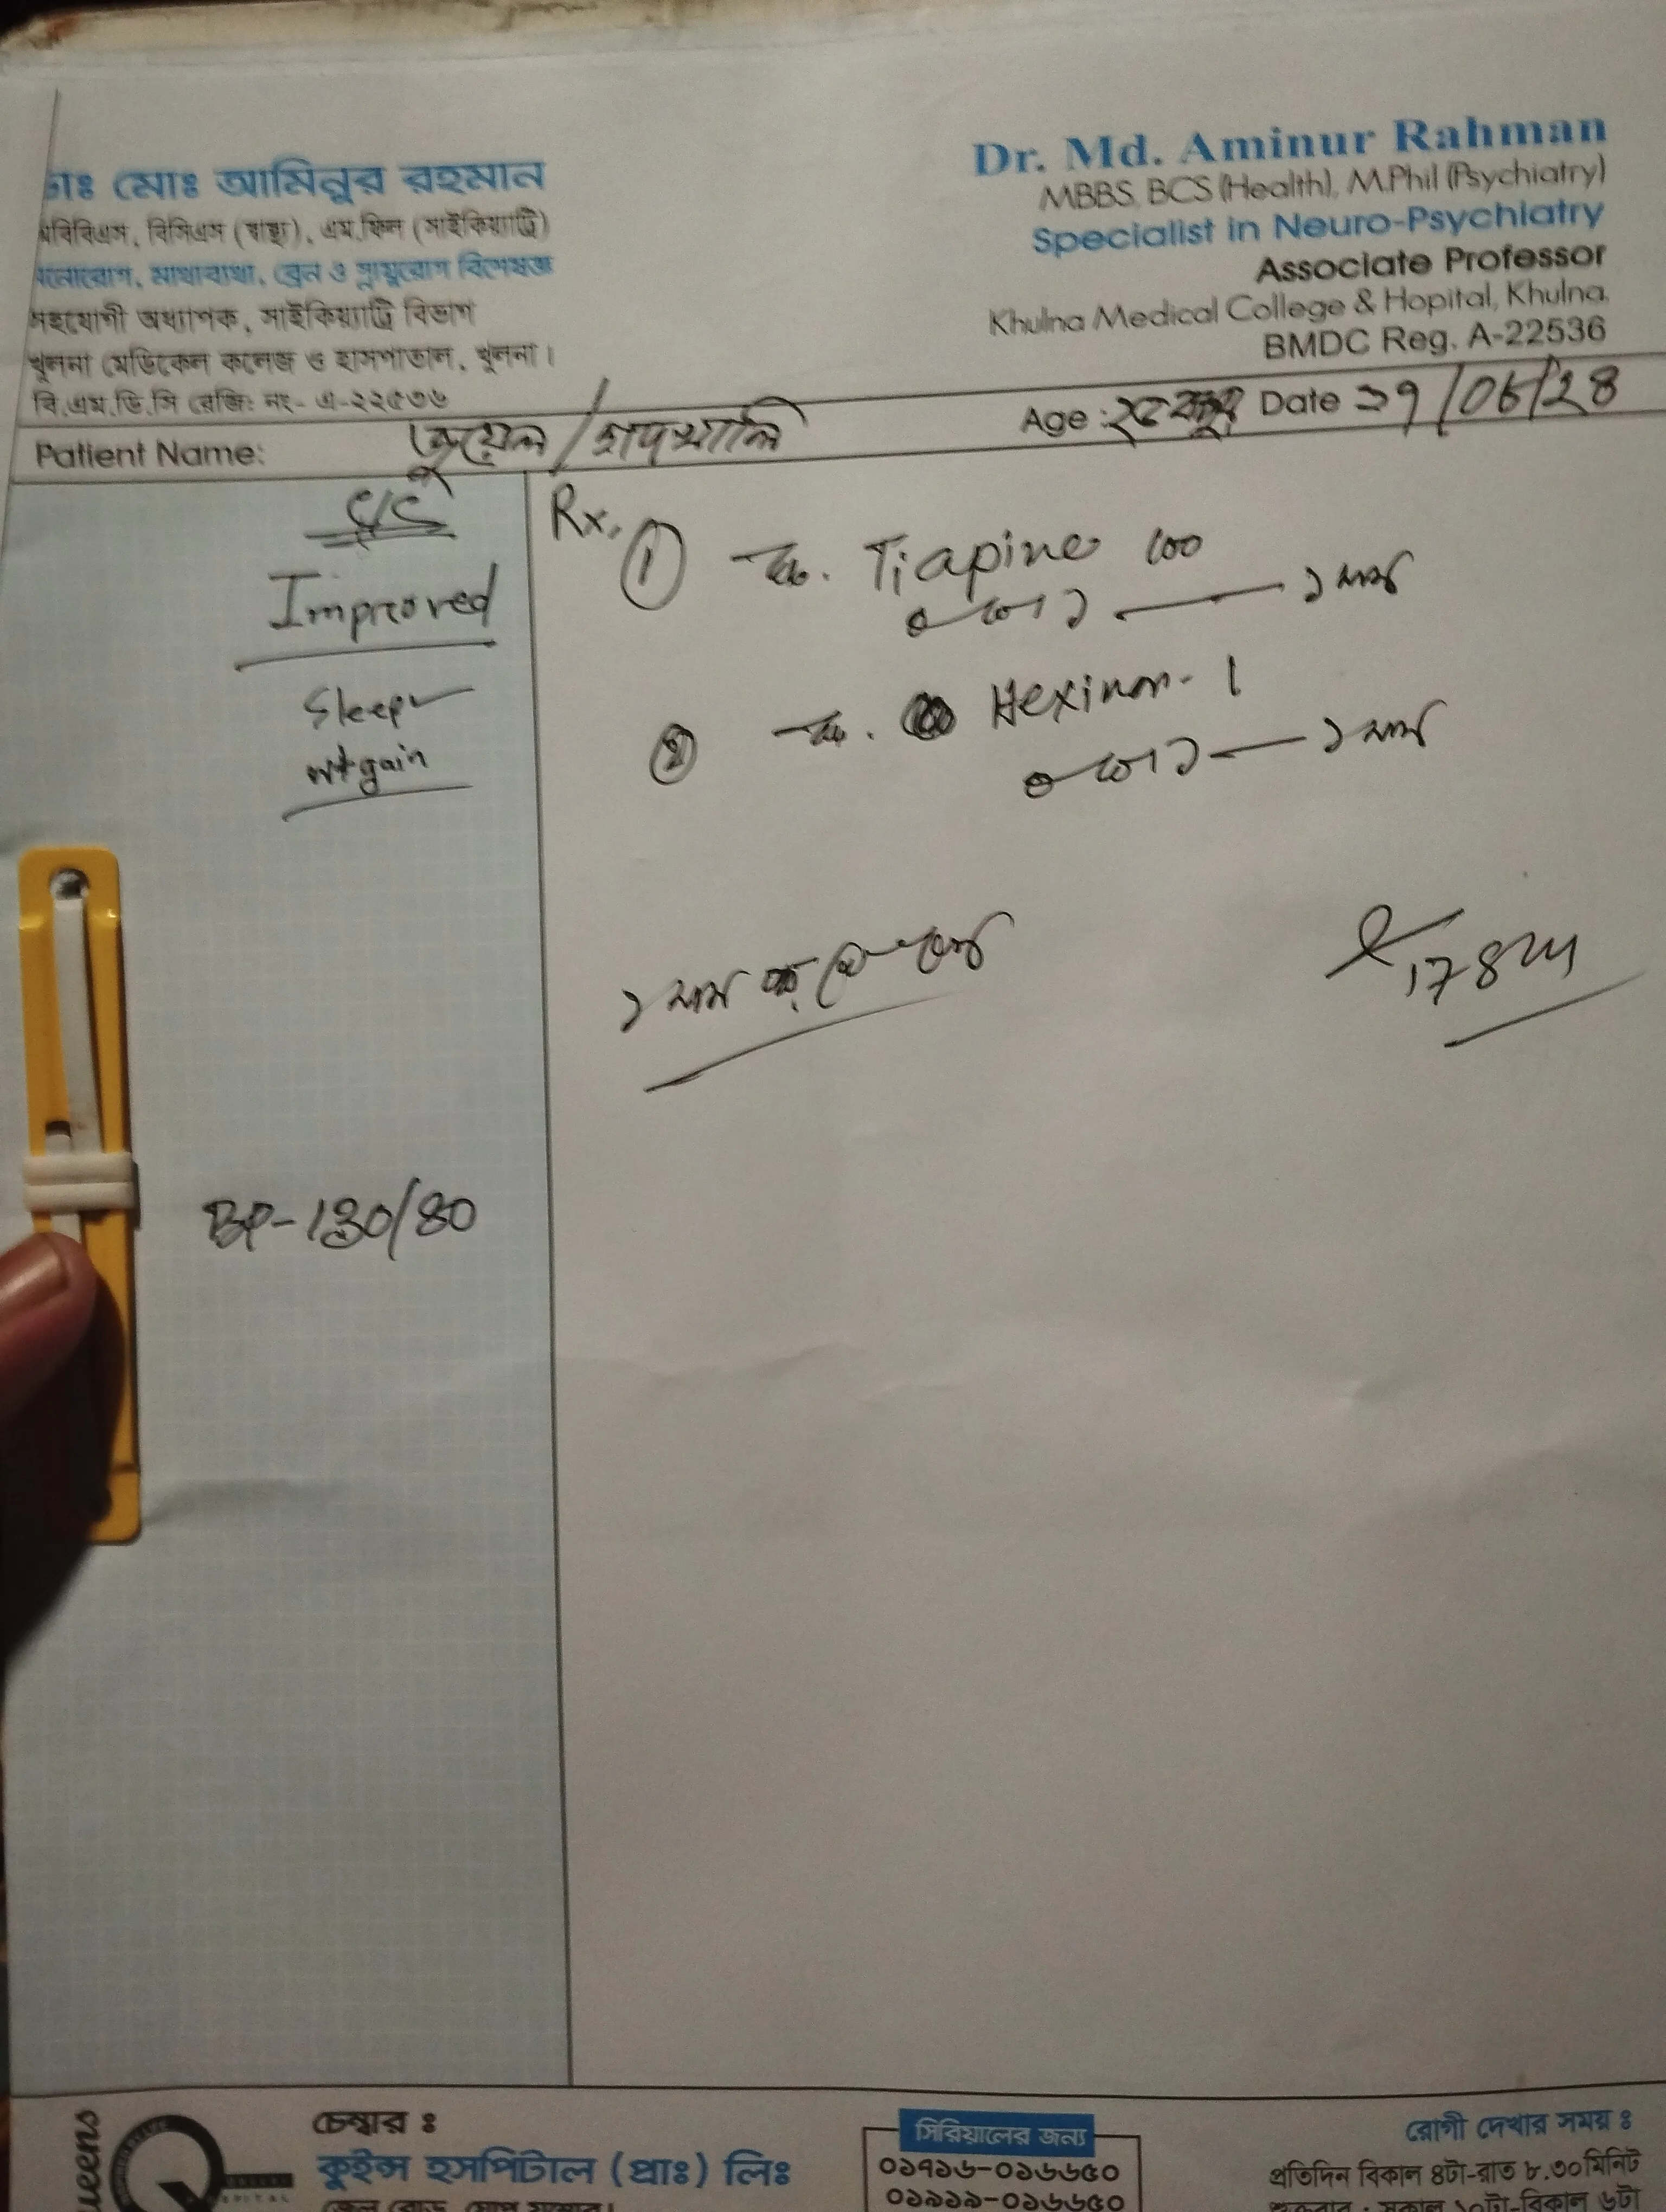 ডাঃ মোঃ আমিনুর রহমান
এমবিবিএস, বিসিএস (স্বাস্থ্য), এম.ফিল (সাইকিয়াট্রি)
মনোরোগ, মাথাব্যথা, ব্রেন ও স্নায়ুরোগ বিশেষজ্ঞ
সহযোগী অধ্যাপক, সাইকিয়াট্রি বিভাগ
খুলনা মেডিকেল কলেজ ও হাসপাতাল, খুলনা।
বি.এম.ডি.সি রেজিঃ নং- এ-২২৫৩৬
Dr. Md. Aminur Rahman
MBBS, BCS (Health), M.Phil (Psychiatry)
Specialist in Neuro-Psychiatry
Associate Professor
Khulna Medical College & Hopital, Khulna.
BMDC Reg. A-22536
Patient Name: জুয়েল /
Age : Date
Improved
Sleep
wt gain
BP-130/80
Rx.
① Tiapine 100
০ + ০ + ১ — ১ মাস
② Hexinor- 1
০ + ০ + ১ — ১ মাস
১ মাস
চেম্বার ঃ
কুইন্স হসপিটাল (প্রাঃ) লিঃ
সিরিয়ালের জন্য
০১৭১৬-০১৬৬৫০
০১৯১৯-০১৬৬৫০
রোগী দেখার সময় ঃ
প্রতিদিন বিকাল ৪টা-রাত ৮.৩০মিনিট
শুক্রবার : সকাল ১০টা-বিকাল ৬টা